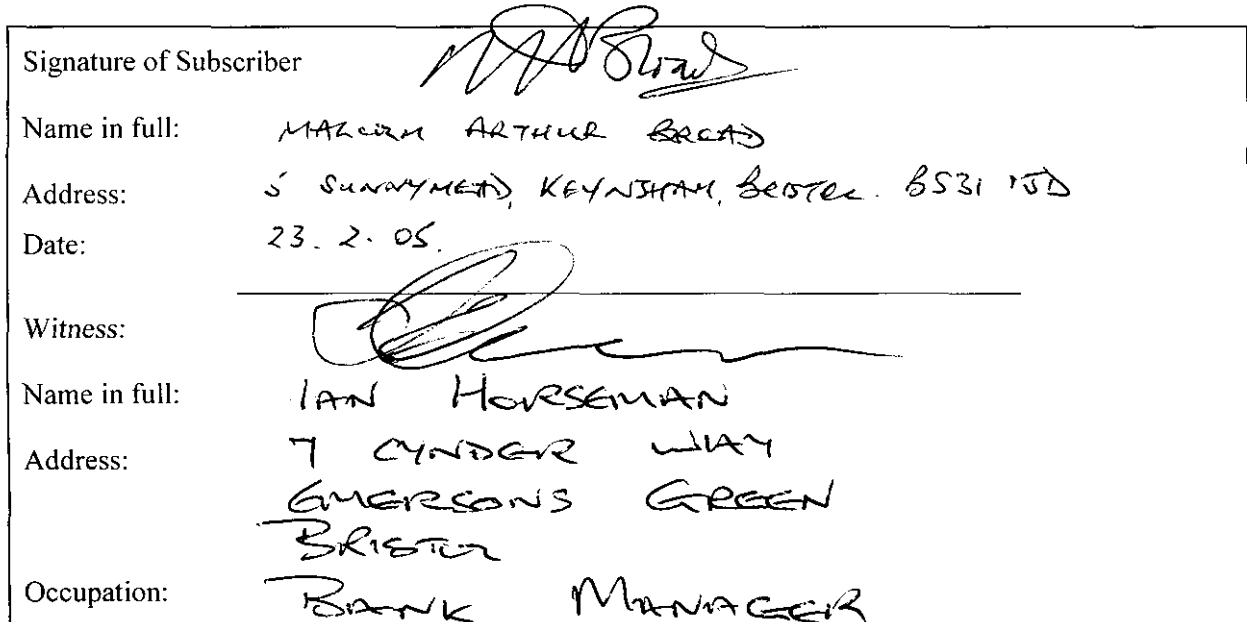 Signature of Subscriber MABroad
Name in full: MALCOLM ARTHUR BROAD
Address: 5 SUNNYMEAD, KEYNSHAM, BRISTOL. BS31 1JD
Date: 23. 2. 05.
Witness:
Name in full: IAN HORSEMAN
Address: 7 CYNDER WAY
EMERSONS GREEN
BRISTOL
Occupation: BANK MANAGER